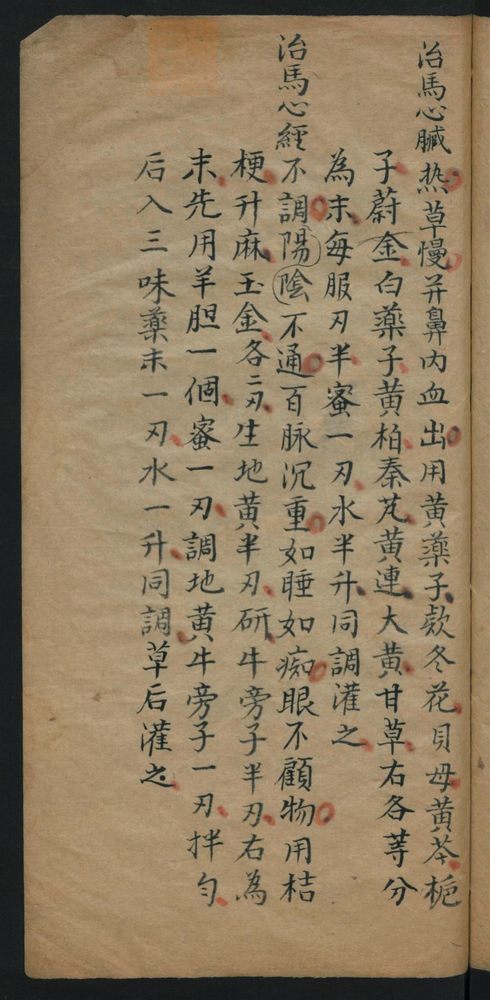 治馬心臟热草慢并鼻内血出用黄藥子欵冬花貝母黄芩梔
子蔚金白藥子黄柏秦艽黄連大黄甘草右各等分
為末每服刃半蜜一刃水半升同調灌之
治馬心經不調陽陰不通百脉沉重如睡如痴眼不顧物用桔
梗升麻玉金各二刃生地黄半刃研牛旁子半刃右為
末先用羊胆一個蜜一刃調地黄牛旁子一刃拌匀
后入三味藥末一刃水一升同調草后灌之